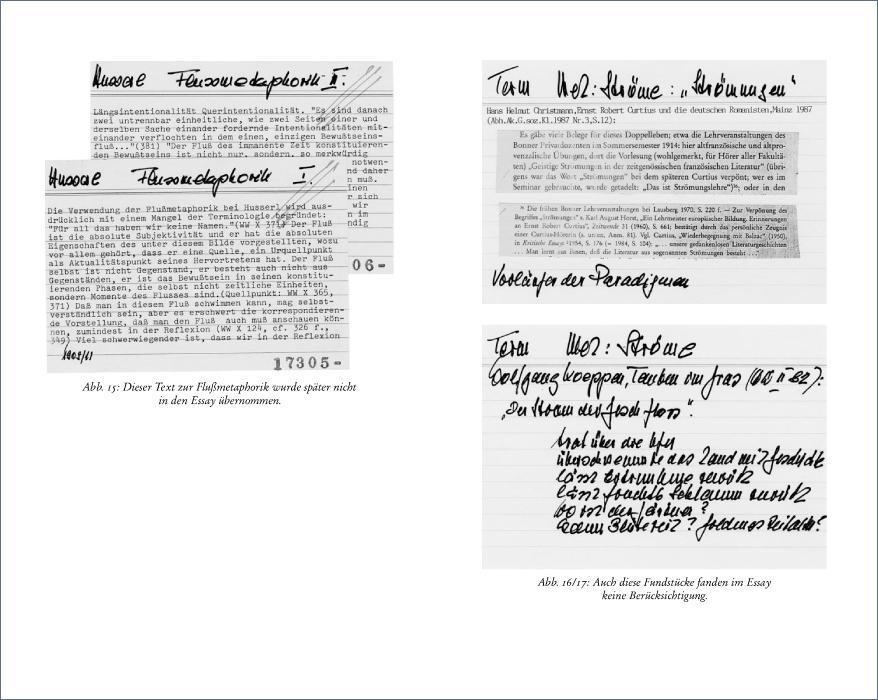 Husserl Flussmetaphorik II.
Längsintentionalität Querintentionalität. "Es sind danach
zwei untrennbar einheitliche, wie zwei Seiten einer und
derselben Sache einander fordernde Intentionalitäten mit-
einander verflochten in dem einen, einzigen Bewußtseins-
fluß..."(381) "Der Fluß des immanente Zeit konstituieren-
den Bewußtseins ist nicht nur, sondern, so merkwürdig
notwen-
nd daher
n muß.
inen
r sich
wir
n im
ndig
06-
Husserl Flussmetaphorik I.
Die Verwendung der Flußmetaphorik bei Husserl wird aus-
drücklich mit einem Mangel der Terminologie begründet:
"Für all das haben wir keine Namen."(WW X 371) Der Fluß
ist die absolute Subjektivität und er hat die absoluten
Eigenschaften des unter diesem Bilde vorgestellten, wozu
vor allem gehört, daß er eine Quelle, ein Urquellpunkt
als Aktualitätspunkt seines Hervortretens hat. Der Fluß
selbst ist nicht Gegenstand, er besteht auch nicht aus
Gegenständen, er ist das Bewußtsein in seinen konstitu-
ierenden Phasen, die selbst nicht zeitliche Einheiten,
sondern Momente des Flusses sind.(Quellpunkt: WW X 365,
371) Daß man in diesem Fluß schwimmen kann, mag selbst-
verständlich sein, aber es erschwert die korrespondieren-
de Vorstellung, daß man den Fluß auch muß anschauen kön-
nen, zumindest in der Reflexion (WW X 124, cf. 326 f.,
349) Viel schwerwiegender ist, daß wir in der Reflexion
17305-
Abb. 15: Dieser Text zur Flußmetaphorik wurde später nicht
in den Essay übernommen.
Term Met: Ströme: „Strömungen"
Hans Helmut Christmann, Ernst Robert Curtius und die deutschen Romanisten, Mainz 1987
(Abh.Ak.G.soz.Kl.1987 Nr.3,S.12):
Es gäbe viele Belege für dieses Doppelleben; etwa die Lehrveranstaltungen des
Bonner Privatdozenten im Sommersemester 1914: hier altfranzösische und altpro-
venzalische Übungen, dort die Vorlesung (wohlgemerkt, für Hörer aller Fakultä-
ten) „Geistige Strömungen in der zeitgenössischen französischen Literatur" (übri-
gens war das Wort "Strömungen" bei dem späteren Curtius verpönt; wer es im
Seminar gebrauchte, wurde getadelt: „Das ist Strömungslehre")³⁶; oder in den
³⁶ Die frühen Bonner Lehrveranstaltungen bei Lausberg 1970, S. 220 f. – Zur Verpönung des
Begriffes „Strömungen" s. Karl August Horst, „Ein Lehrmeister europäischer Bildung. Erinnerungen
an Ernst Robert Curtius", Zeitwende 31 (1960), S. 661; bestätigt durch das persönliche Zeugnis
einer Curtius-Hörerin (s. unten, Anm. 81). Vgl. Curtius, „Wiederbegegnung mit Balzac", (1950),
in Kritische Essays ²1954, S. 176 (= 1984, S. 104): „... unsere gedankenlosen Literaturgeschichten
... Man lernt aus ihnen, daß die Literatur aus sogenannten Strömungen besteht ..."
Vorläufer der Paradigmen
Term Met: Ströme
Wolfgang Koeppen, Tauben im Gras (GW II 82):
„Der Strom der Geschichte floss".
trat über die Ufer
überschwemmte das Land mit Geschichte
lässt Ertrunkene zurück
lässt fruchtb. Schlamm zurück
wo ist der Gärtner?
wann Blütezeit? goldenes Zeitalter?
Abb. 16/17: Auch diese Fundstücke fanden im Essay
keine Berücksichtigung.